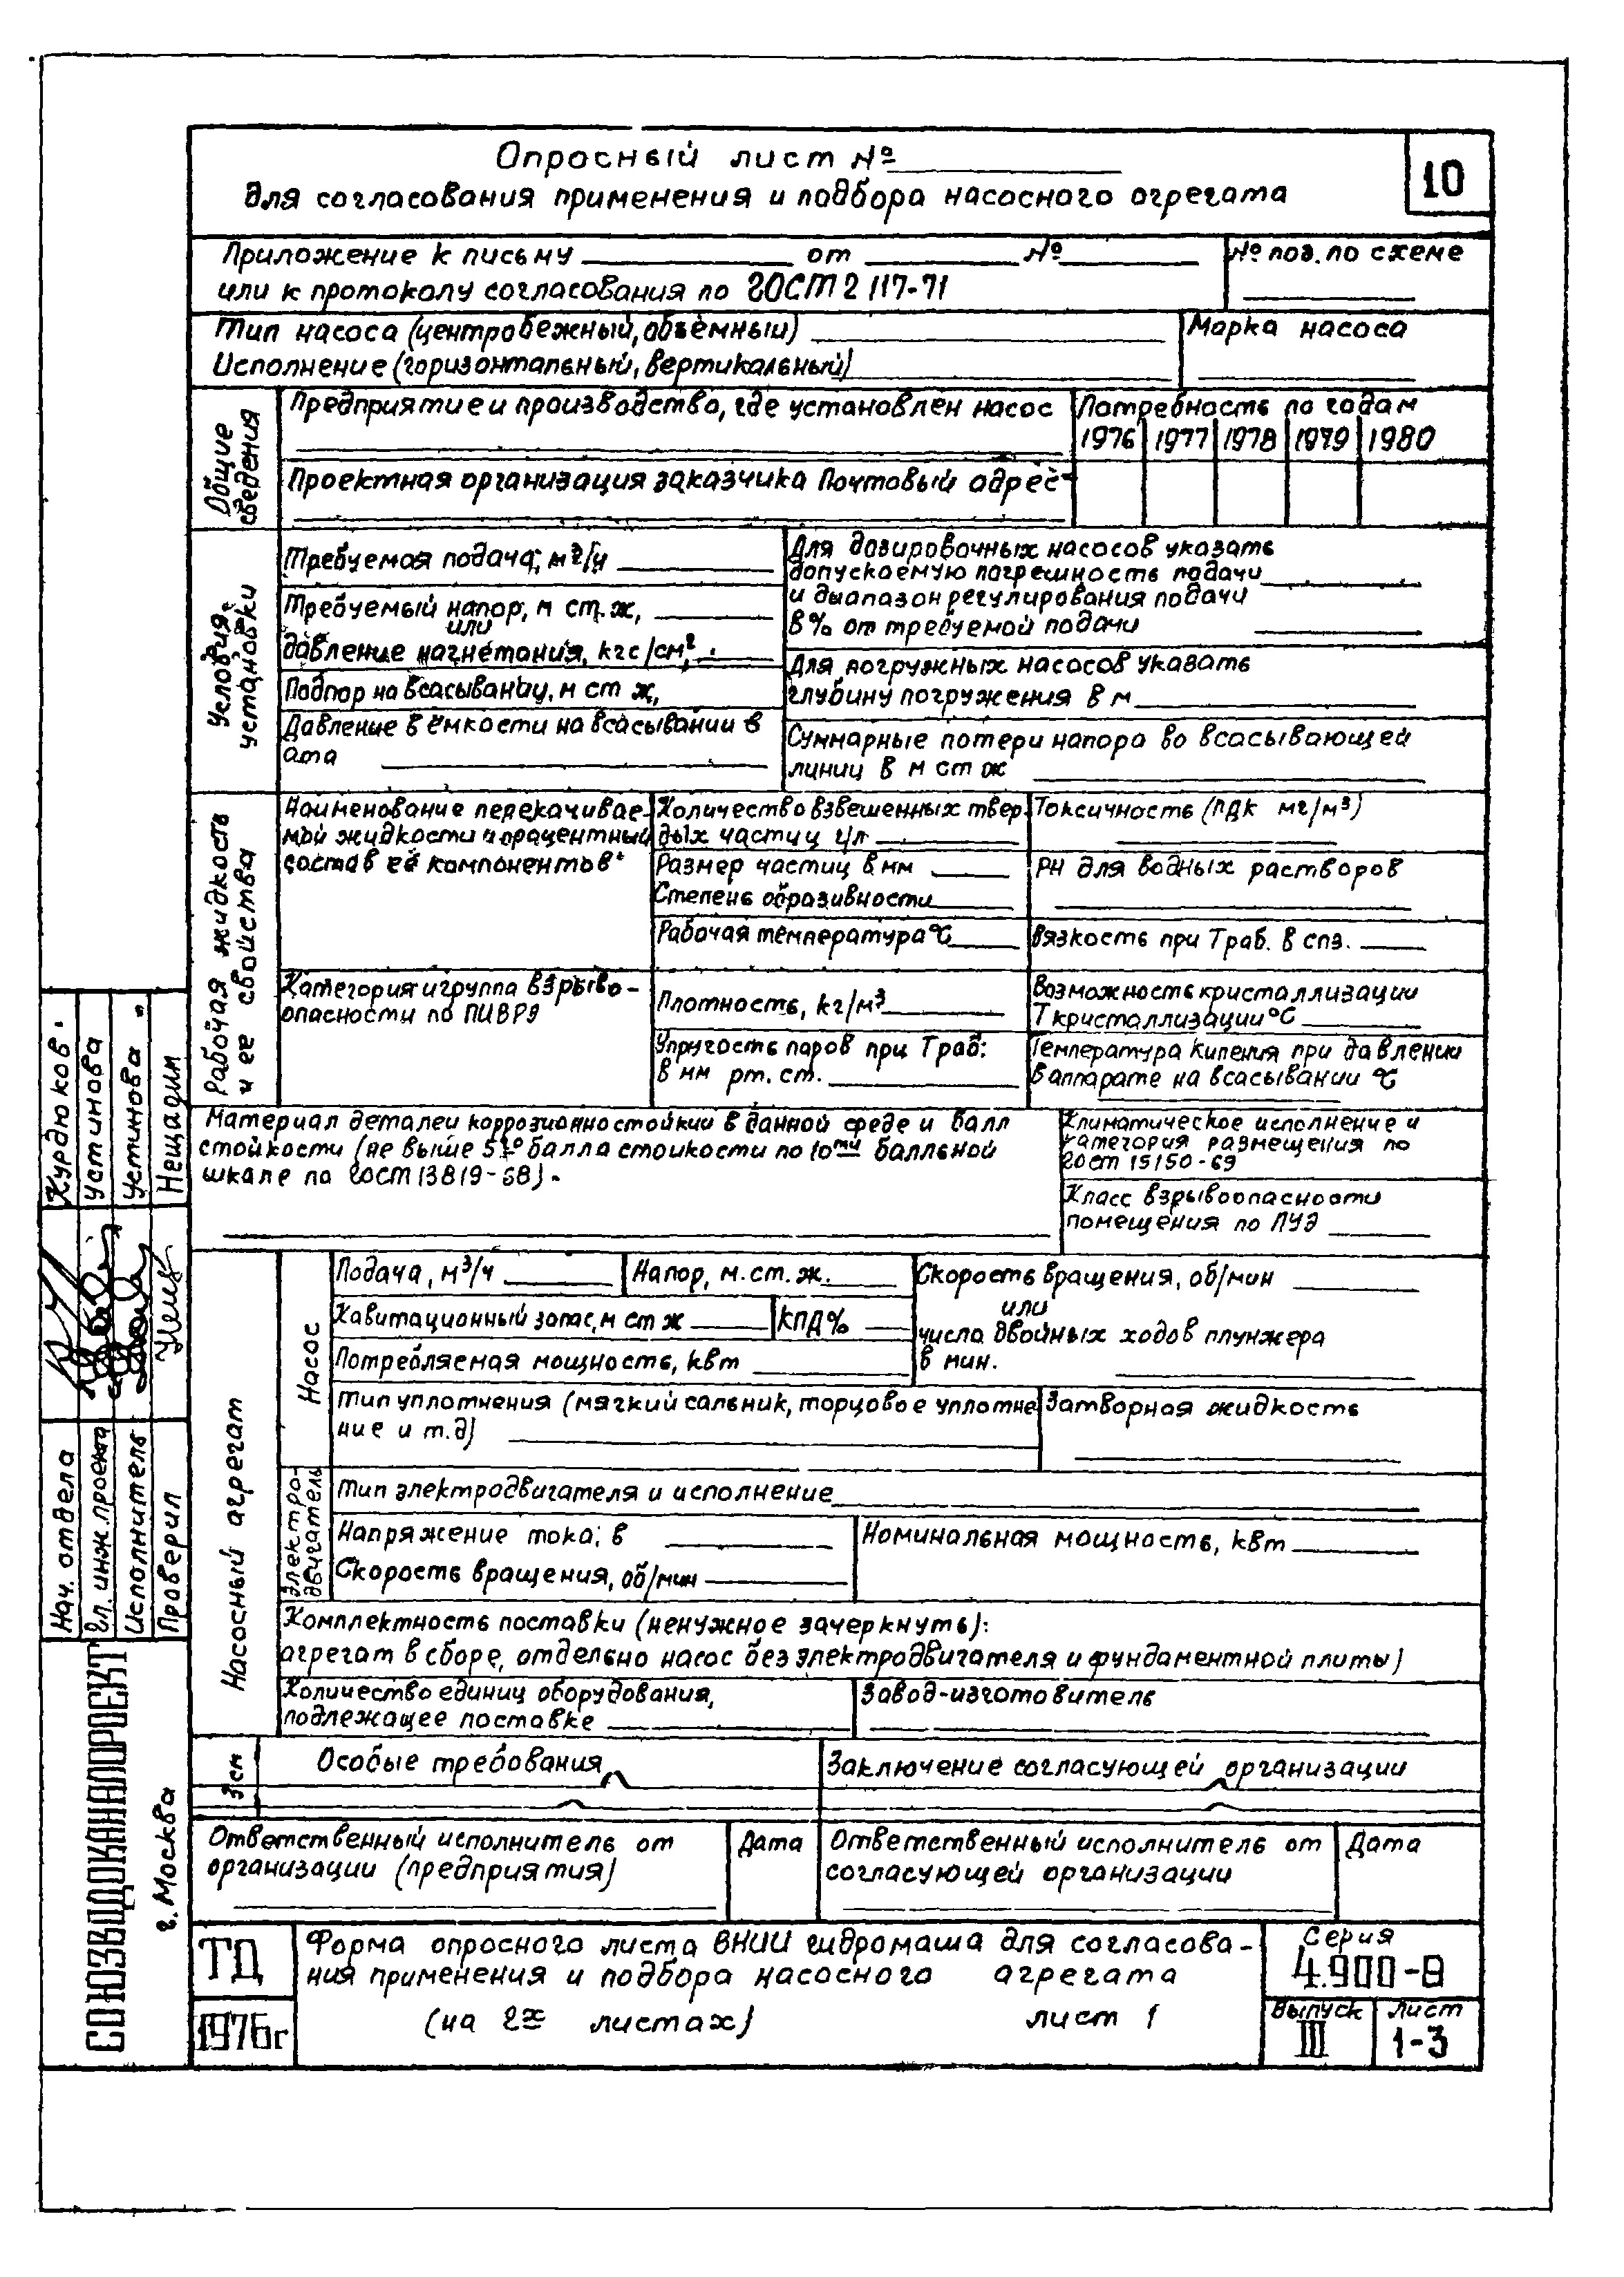 Опросный лист №
для согласования применения и подбора насосного агрегата
10
Приложение к письму от №
или к протоколу согласования по ГОСТ 2 117-71
№ поз. по схеме
Тип насоса (центробежный, объёмный)
Исполнение (горизонтальный, вертикальный)
Марка насоса
Общие
сведения
Предприятие и производство, где установлен насос
Проектная организация заказчика Почтовый адрес
Потребность по годам
1976 1977 1978 1979 1980
Условия
установки
Требуемая подача, м³/ч
Требуемый напор, м ст. ж,
или
давление нагнетания, кгс/см²
Подпор на всасывании, м ст ж,
Давление в ёмкости на всасывании в
ата
Для дозировочных насосов указать
допускаемую погрешность подачи
и диапазон регулирования подачи
в % от требуемой подачи
Для погружных насосов указать
глубину погружения в м
Суммарные потери напора во всасывающей
линии в м ст ж
Рабочая жидкость
и ее свойства
Наименование перекачивае-
мой жидкости и процентный
состав её компонентов
Категория и группа взрыво-
опасности по ПИВРЭ
Количество взвешенных твер-
дых частиц г/л
Размер частиц в мм
Степень абразивности
Рабочая температура °С
Плотность, кг/м³
Упругость паров при Траб:
в мм рт. ст.
Токсичность (ПДК мг/м³)
РН для водных растворов
Вязкость при Траб. в спз.
Возможность кристаллизации
Т кристаллизации °С
Температура кипения при давлении
в аппарате на всасывании °С
Материал деталей коррозионностойкий в данной среде и балл
стойкости (не выше 5го балла стойкости по 10ти балльной
шкале по ГОСТ 13819-68).
Климатическое исполнение и
категория размещения по
ГОСТ 15150-69
Класс взрывоопасности
помещения по ПУЭ
Насосный агрегат
Насос
Подача, м³/ч
Напор, м. ст. ж.
Кавитационный запас, м ст ж
КПД %
Потребляемая мощность, квт
Скорость вращения, об/мин
или
число двойных ходов плунжера
в мин.
Тип уплотнения (мягкий сальник, торцовое уплотне
ние и т.д)
Затворная жидкость
Электро-
двигатель
Тип электродвигателя и исполнение
Напряжение тока; в
Скорость вращения, об/мин
Номинальная мощность, квт
Комплектность поставки (ненужное зачеркнуть):
агрегат в сборе, отдельно насос без электродвигателя и фундаментной плиты)
Количество единиц оборудования,
подлежащее поставке
Завод-изготовитель
Особые требования
Заключение согласующей организации
Ответственный исполнитель от
организации (предприятия)
Дата
Ответственный исполнитель от
согласующей организации
Дата
ТД
1976г
Форма опросного листа ВНИИ гидромаша для согласова-
ния применения и подбора насосного агрегата
(на 2х листах) лист 1
Серия
4.900-9
Выпуск
III
Лист
1-3
Нач. отдела
Гл. инж. проекта
Исполнитель
Проверил
Курдюков
Устинова
Устинова
Нещадим
СОЮЗВОДОКАНАЛПРОЕКТ
г. Москва